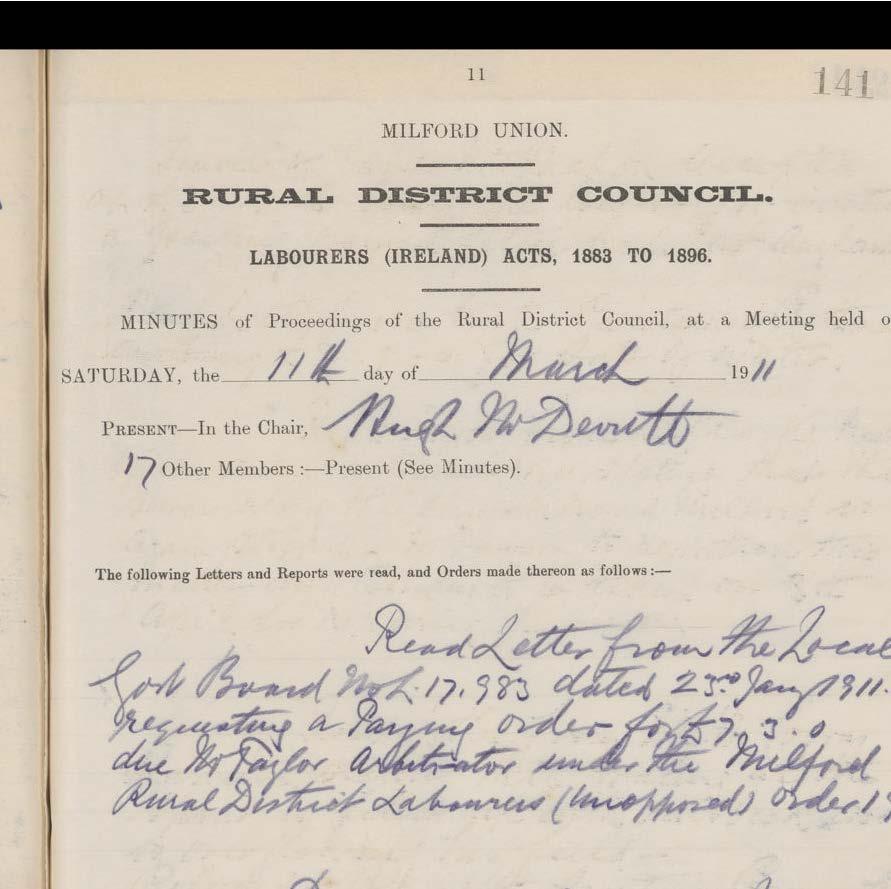 11
141
MILFORD UNION.
RURAL DISTRICT COUNCIL.
LABOURERS (IRELAND) ACTS, 1883 TO 1896.
MINUTES of Proceedings of the Rural District Council, at a Meeting held o
SATURDAY, the 11th day of March 1911
PRESENT—In the Chair, Hugh McDevitt
17 Other Members :—Present (See Minutes).
The following Letters and Reports were read, and Orders made thereon as follows :—
Read Letter from the Local
Govt Board No L. 17.983 dated 23rd Jany 1911.
requesting a Paying order for £7. 3. 0
due Mr Taylor Arbitrator under the Milford
Rural District Labourers (Unopposed) Order 19